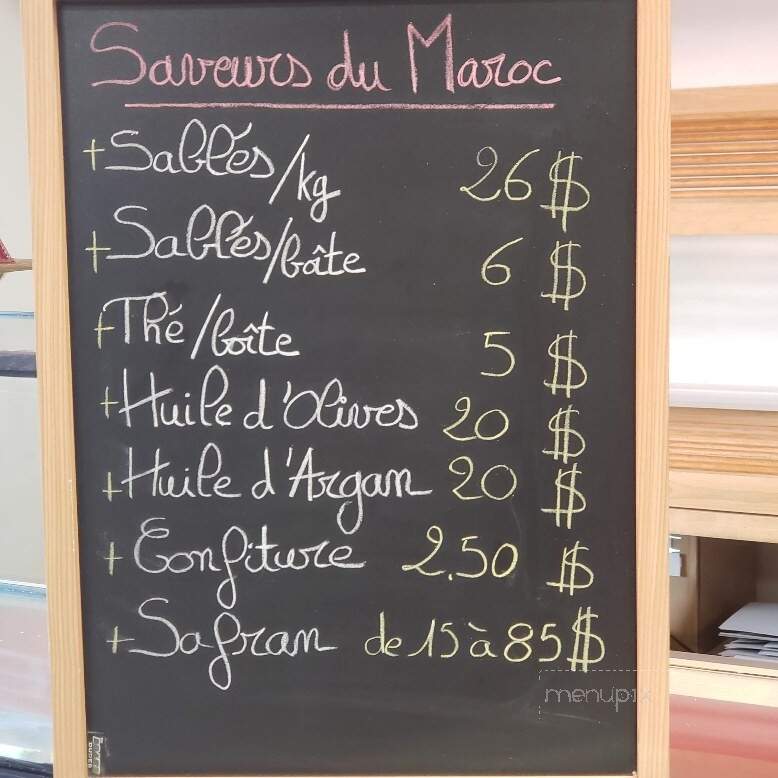 Saveurs du Maroc
+ Sablés/kg 26 $
+ Sablés/boîte 6 $
+ Thé/boîte 5 $
+ Huile d'Olives 20 $
+ Huile d'Argan 20 $
+ Confiture 2.50 $
+ Safran de 15 à 85 $
menupix